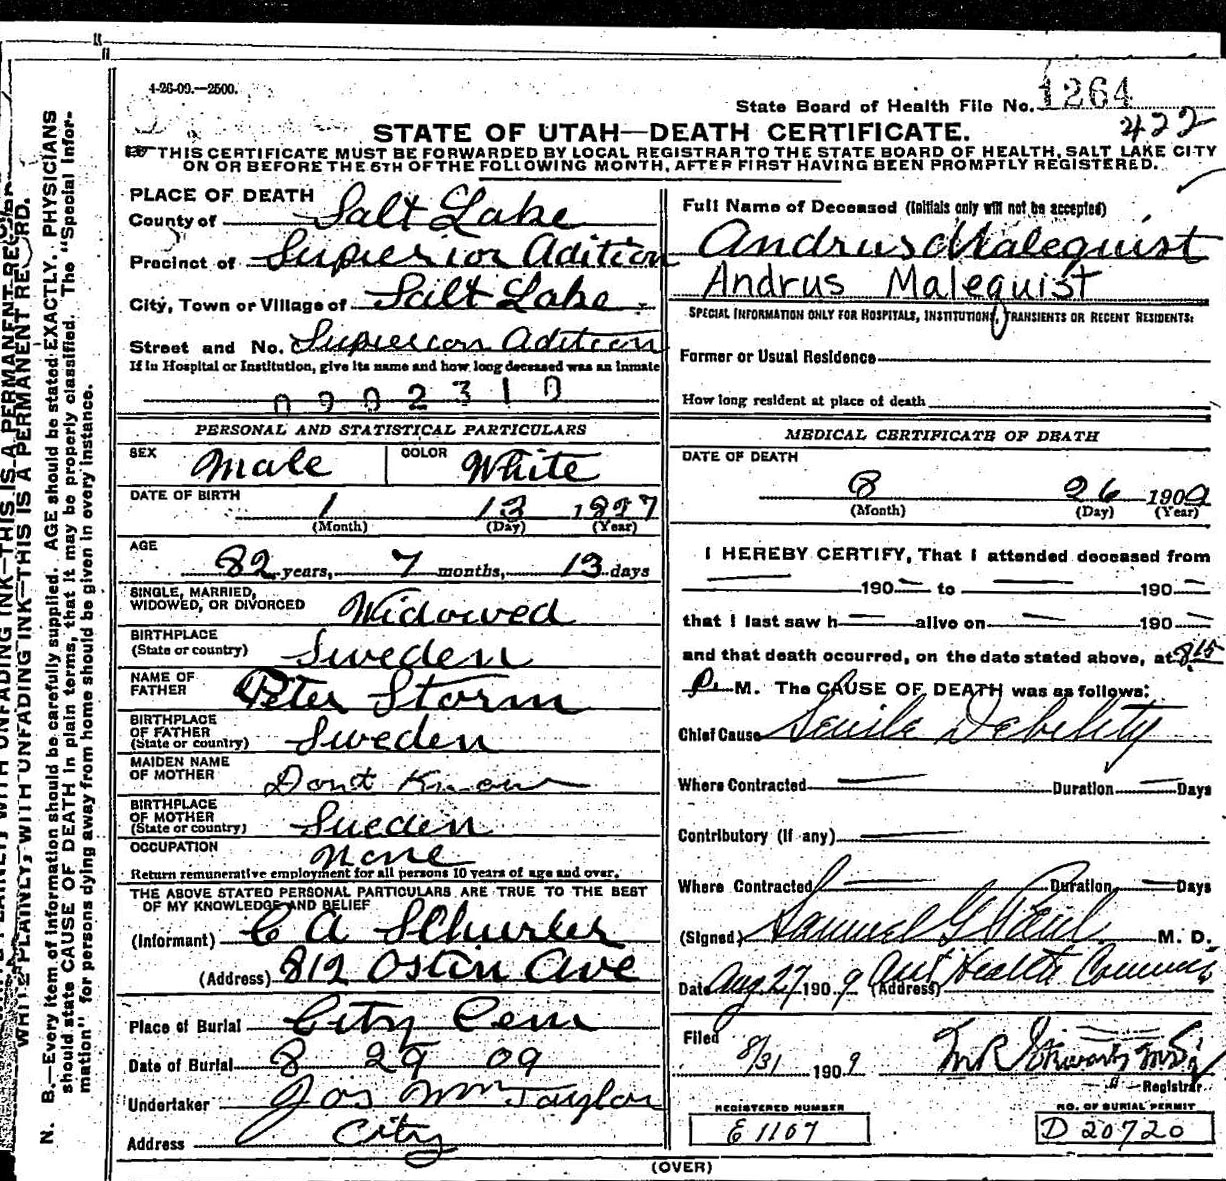 4-26-09.—2500.
State Board of Health File No. 1264
422
STATE OF UTAH—DEATH CERTIFICATE.
THIS CERTIFICATE MUST BE FORWARDED BY LOCAL REGISTRAR TO THE STATE BOARD OF HEALTH, SALT LAKE CITY
ON OR BEFORE THE 5TH OF THE FOLLOWING MONTH, AFTER FIRST HAVING BEEN PROMPTLY REGISTERED.
PLACE OF DEATH
County of Salt Lake
Precinct of Superior Adition
City, Town or Village of Salt Lake
Street and No. Superior Adition
If in Hospital or Institution, give its name and how long deceased was an inmate
0902310
PERSONAL AND STATISTICAL PARTICULARS
SEX Male COLOR White
DATE OF BIRTH 1 13 1827
(Month) (Day) (Year)
AGE
82 years, 7 months, 13 days
SINGLE, MARRIED,
WIDOWED, OR DIVORCED Widowed
BIRTHPLACE
(State or country) Sweden
NAME OF
FATHER Peter Storm
BIRTHPLACE
OF FATHER
(State or country) Sweden
MAIDEN NAME
OF MOTHER Dont Know
BIRTHPLACE
OF MOTHER
(State or country) Sueden
OCCUPATION None
Return remunerative employment for all persons 10 years of age and over.
THE ABOVE STATED PERSONAL PARTICULARS ARE TRUE TO THE BEST
OF MY KNOWLEDGE AND BELIEF
(Informant) C A
(Address) 812 Ostin Ave
Place of Burial City Cem
Date of Burial 8 29 09
Undertaker Jos Wm Taylor
Address City
Full Name of Deceased (Initials only will not be accepted)
Andrus Malequist
Andrus Malequist
SPECIAL INFORMATION ONLY FOR HOSPITALS, INSTITUTIONS, TRANSIENTS OR RECENT RESIDENTS:
Former or Usual Residence
How long resident at place of death
MEDICAL CERTIFICATE OF DEATH
DATE OF DEATH
8 26 1909
(Month) (Day) (Year)
I HEREBY CERTIFY, That I attended deceased from
190 to 190
that I last saw h alive on 190
and that death occurred, on the date stated above, at 8 15
P. M. The CAUSE OF DEATH was as follows:
Chief Cause Senile Debility
Where Contracted Duration Days
Contributory (if any)
Where Contracted Duration Days
(Signed) Samuel G Paul M. D.
Date Aug. 27 190 9 (Address) Health
Filed
8/31 190 9
Registrar
REGISTERED NUMBER
E 1107
NO. OF BURIAL PERMIT
D 20720
(OVER)
WRITE PLAINLY, WITH UNFADING INK—THIS IS A PERMANENT RECORD.
N. B.—Every item of information should be carefully supplied. AGE should be stated EXACTLY. PHYSICIANS
should state CAUSE OF DEATH in plain terms, that it may be properly classified. The "Special Infor-
mation" for persons dying away from home should be given in every instance.